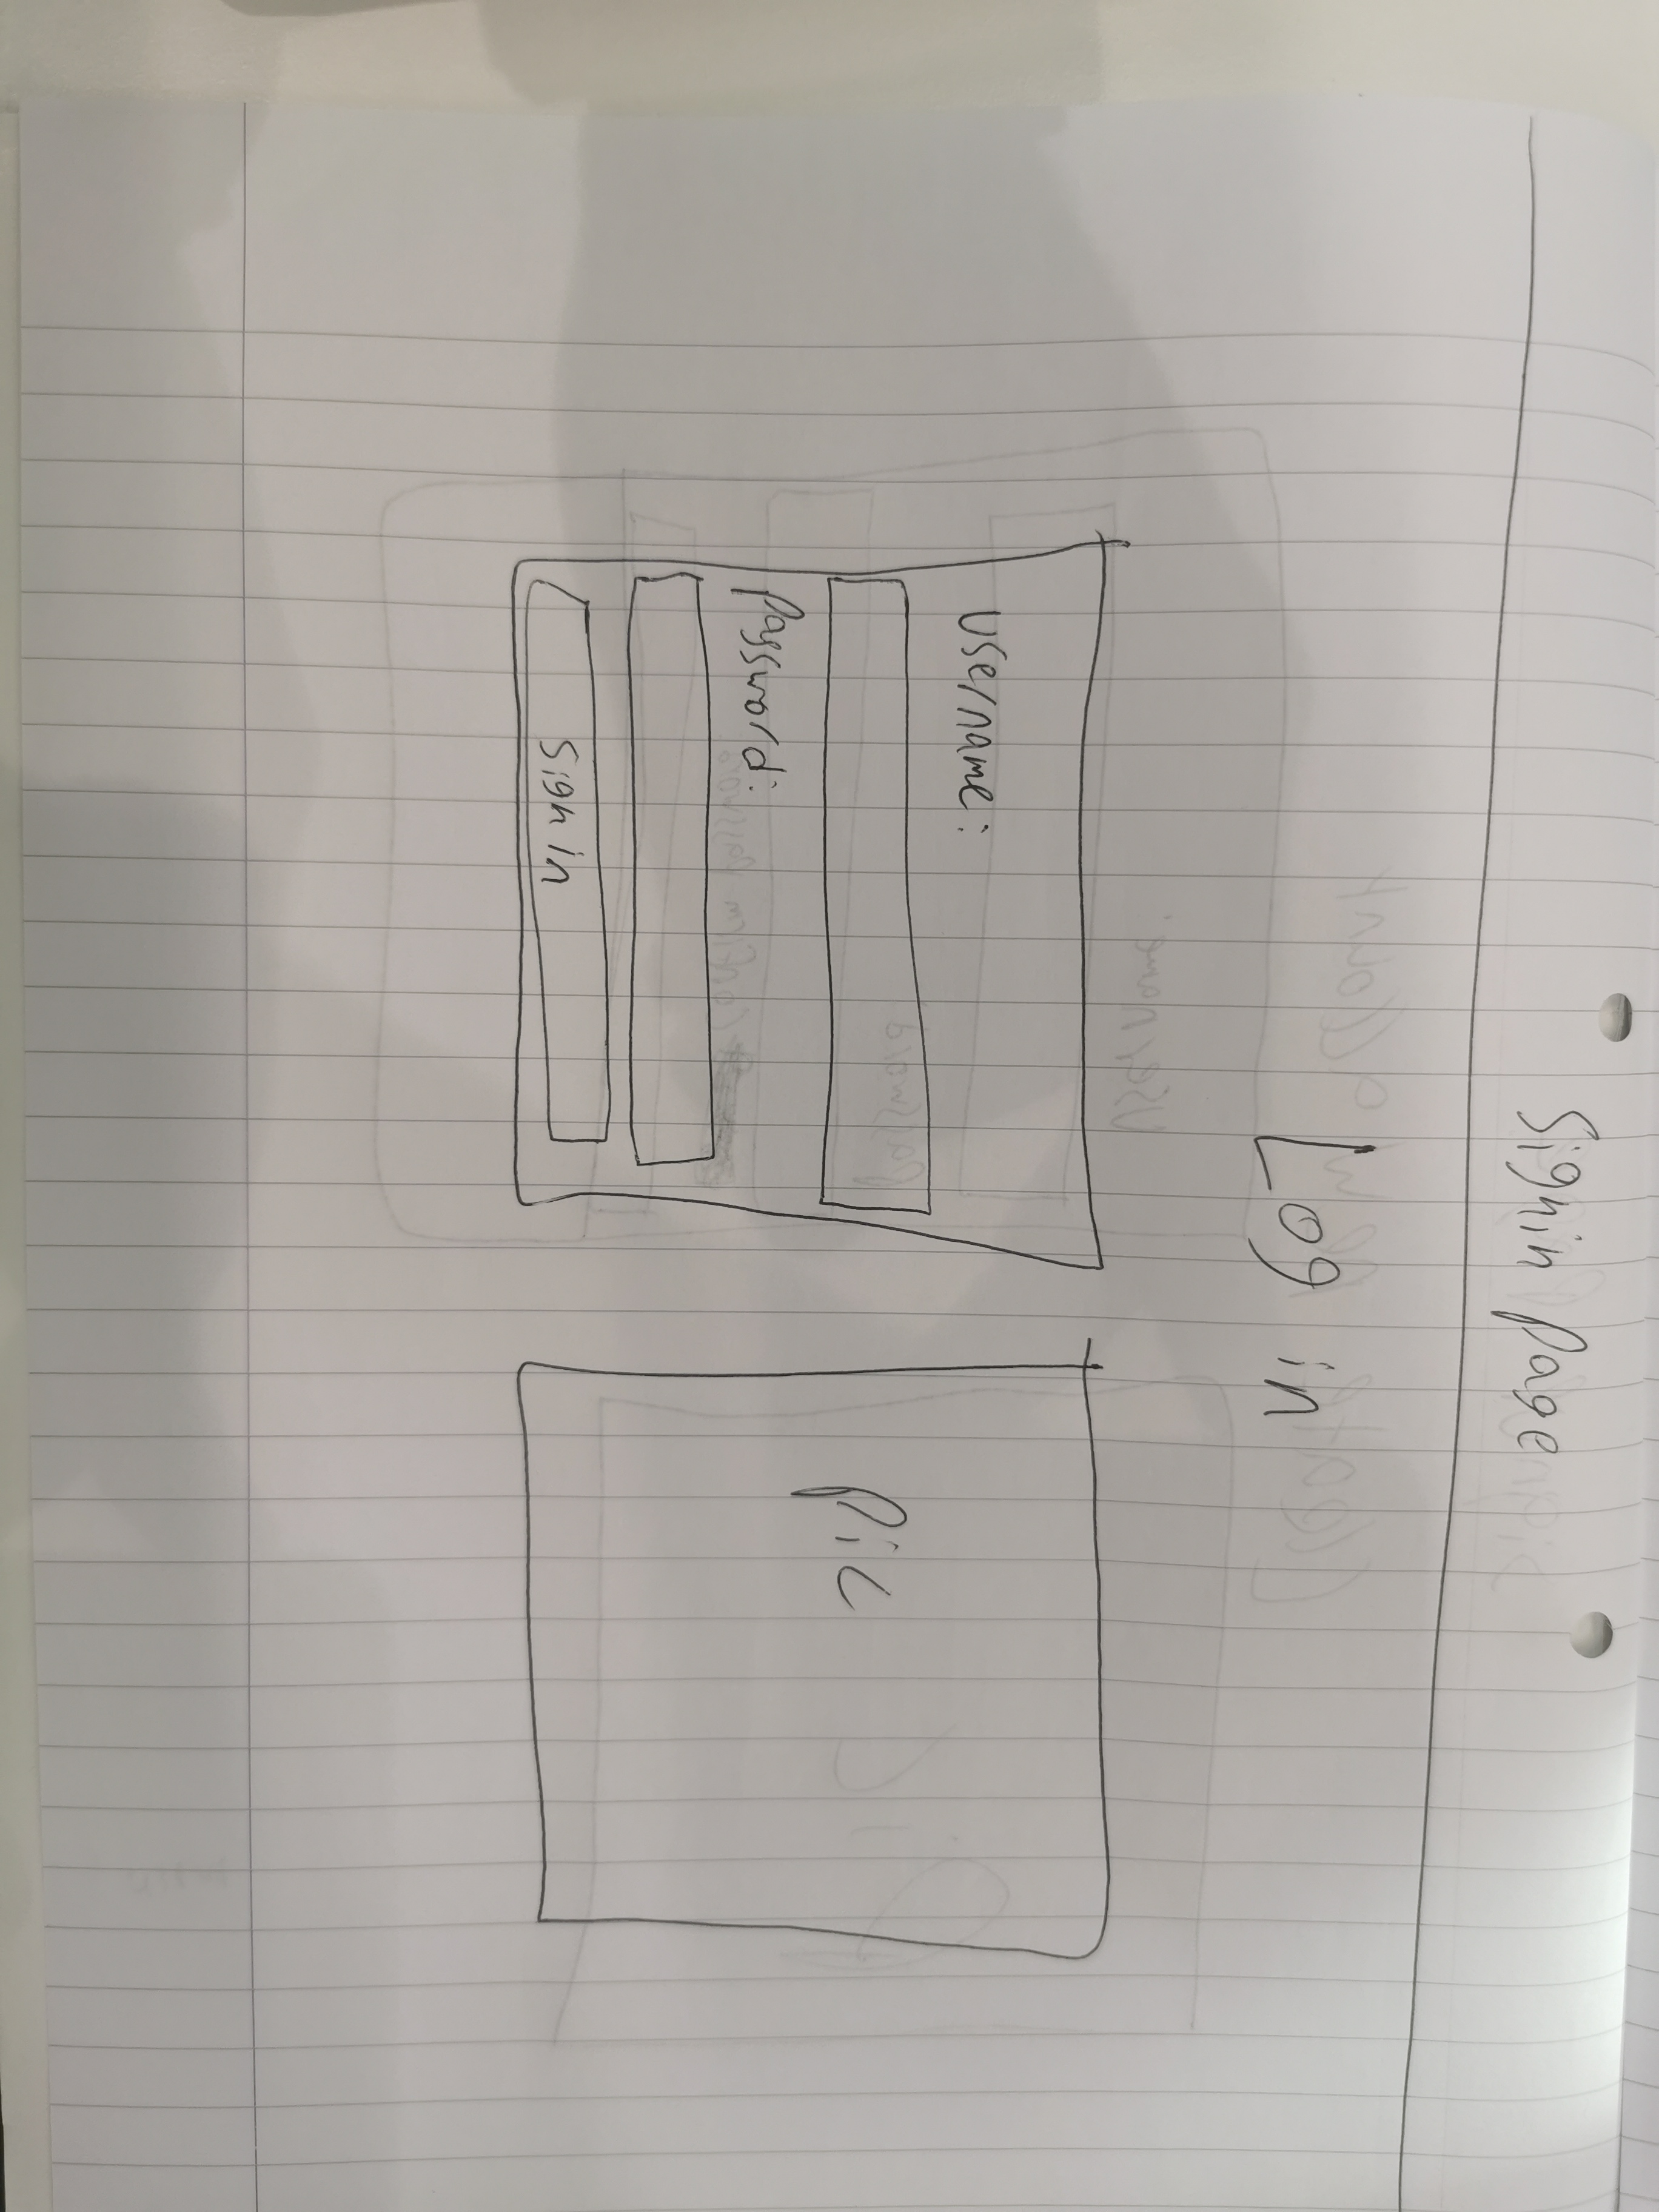 Signin Page
Log in
Username:
Password:
Sign in
Pic